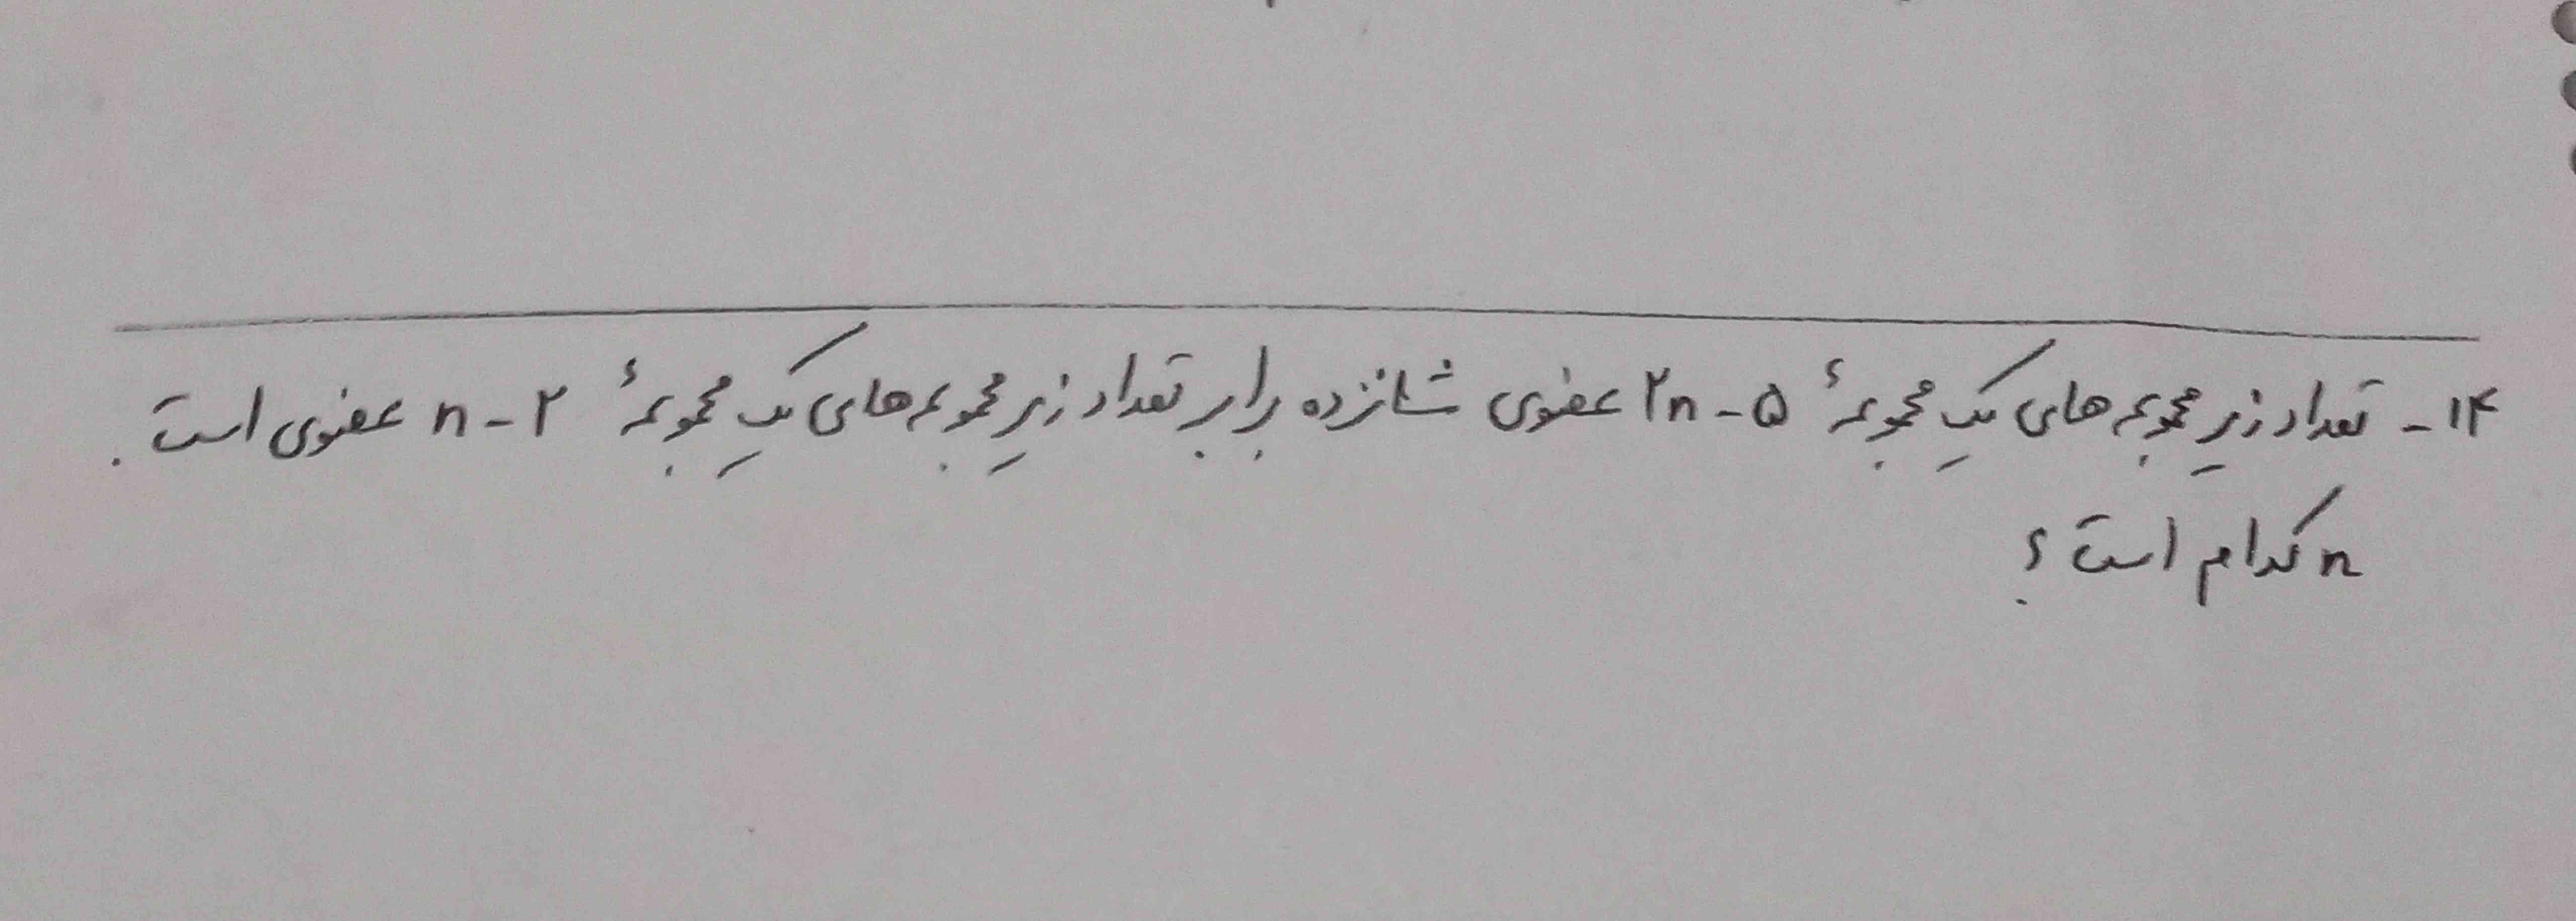 ۱۴- تعداد زیر مجموعه های یک مجموعهٔ ۲n-۵ عضوی شانزده برابر تعداد زیر مجموعه های یک مجموعهٔ n-۲ عضوی است.
n کدام است؟